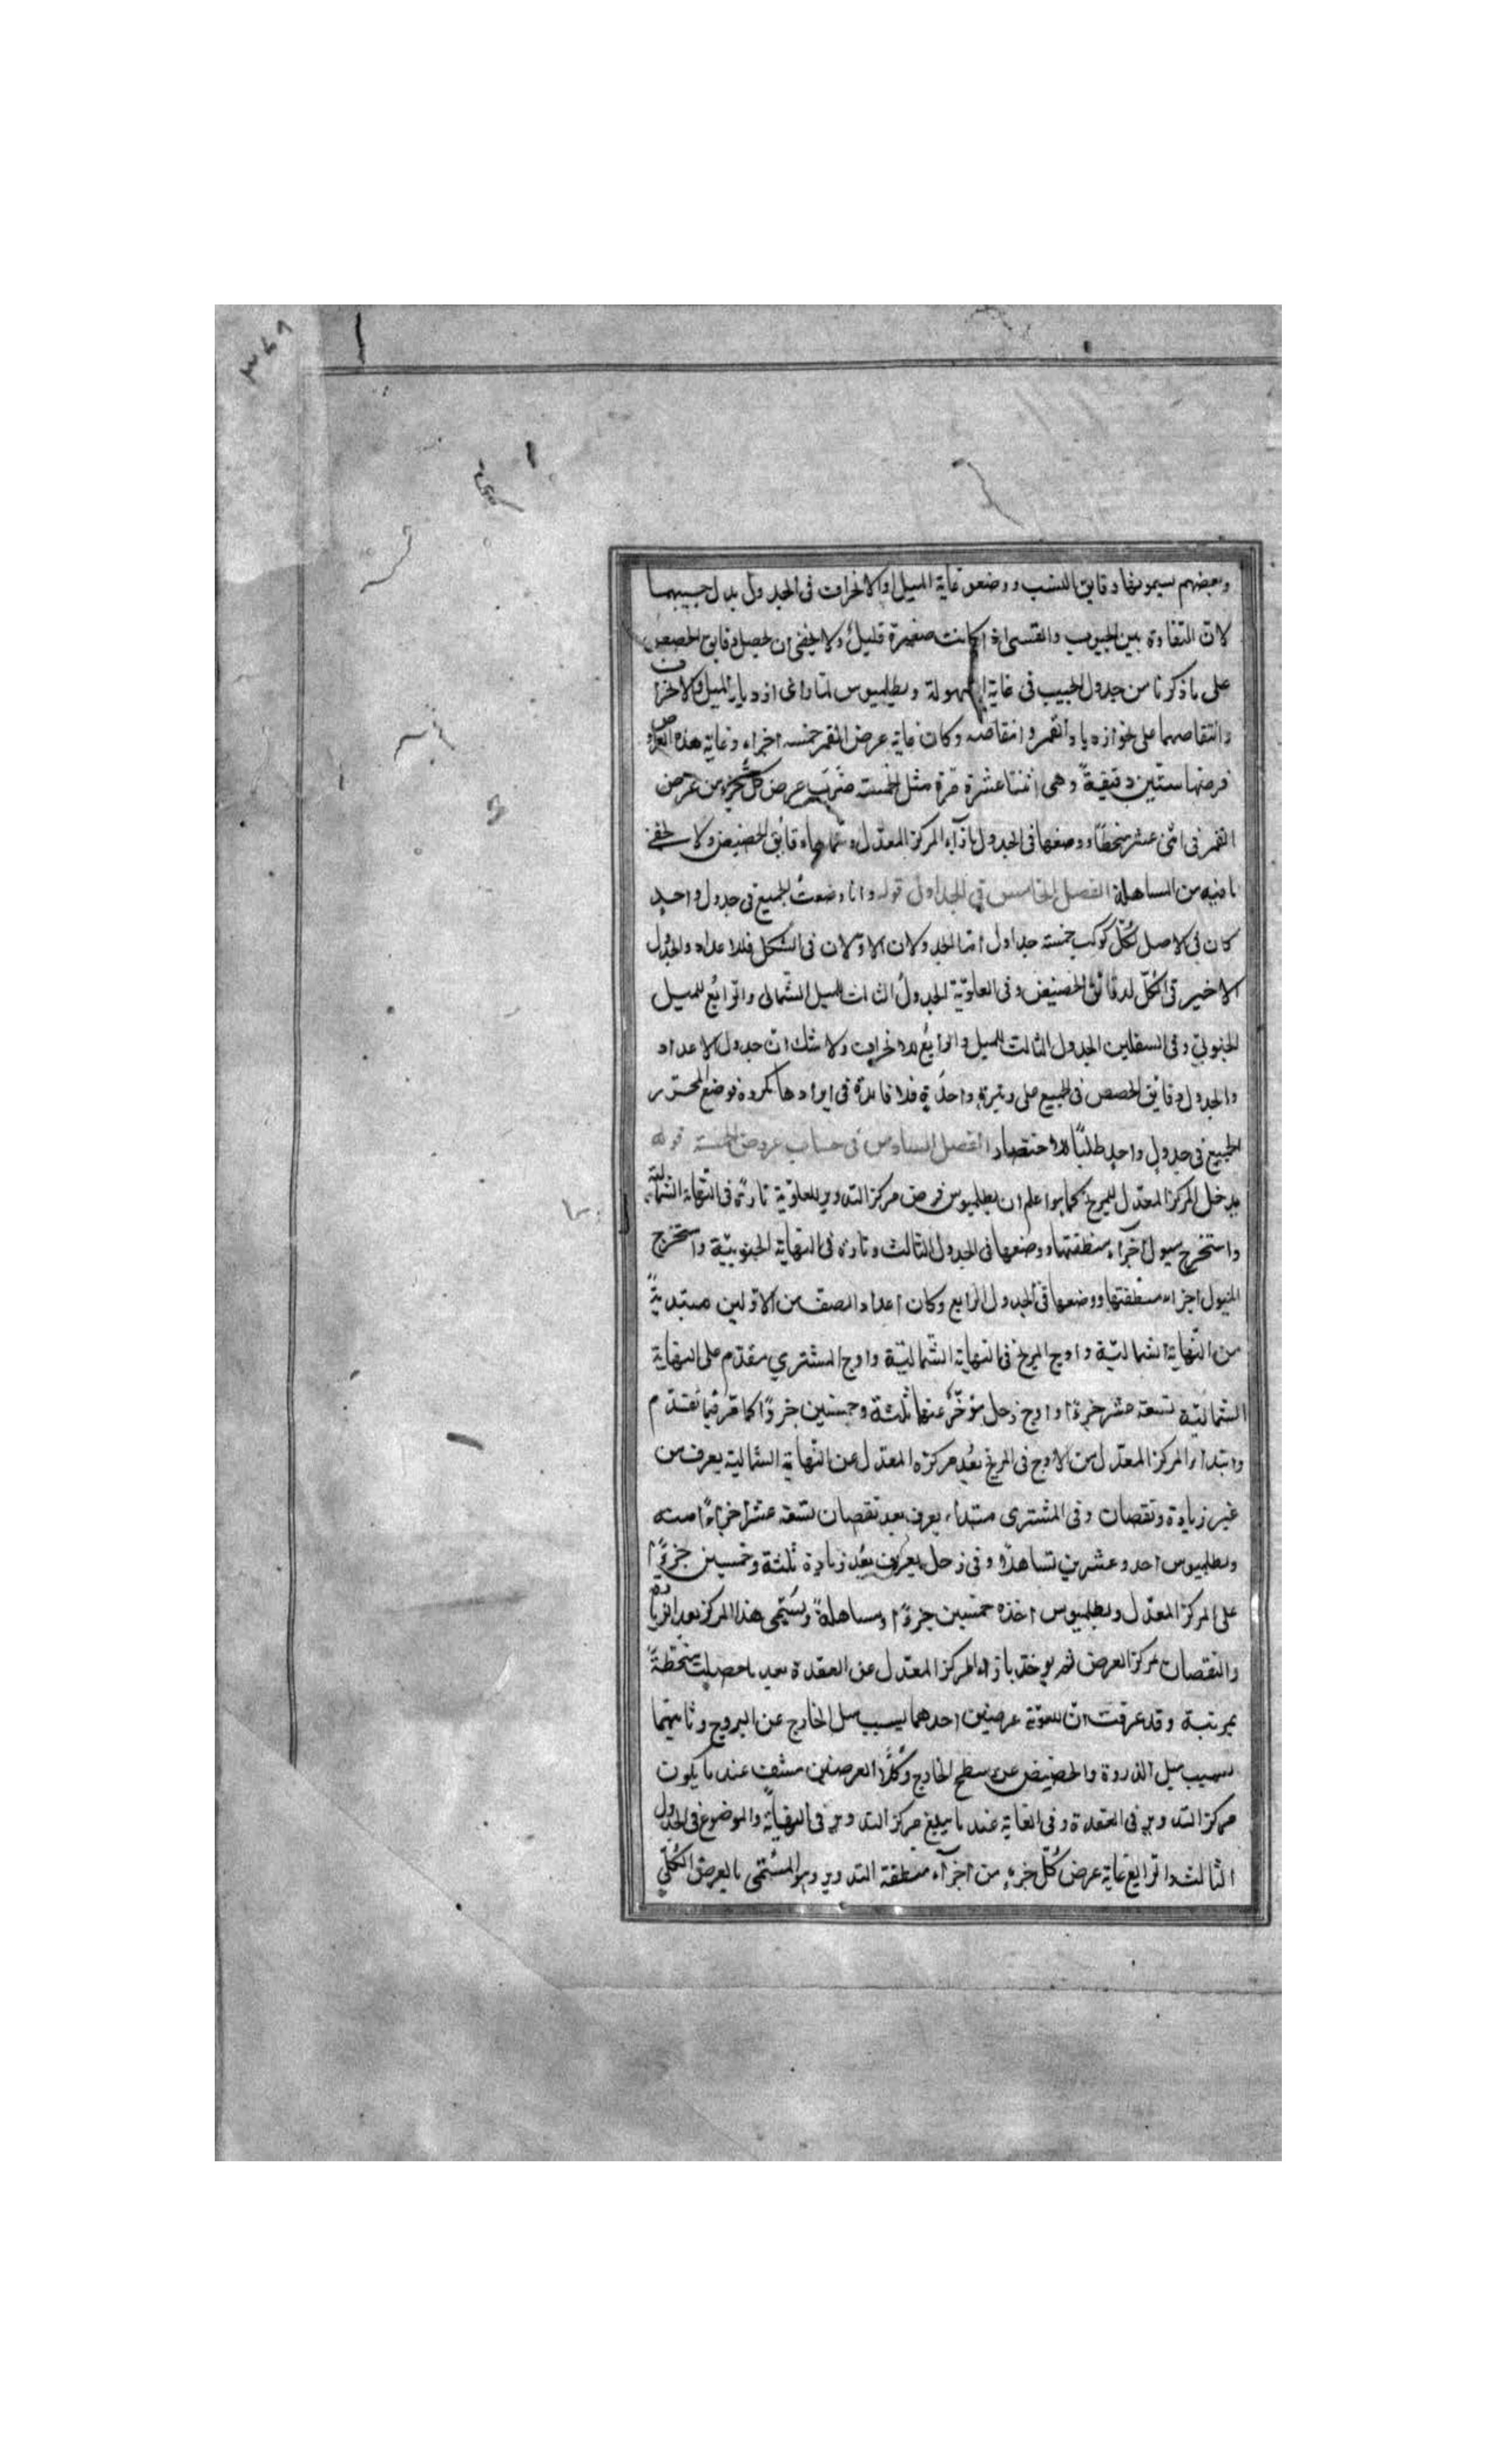 وبعضهم يسمونها دقايق النسب ووضعو غاية الميل او الانحراف فى الجدول بدل جيبهما
لان التفاوة بين الجيوب والقسى اذا كانت صغيرة قليل ولا يخفى ان تحصيل دقايق الحصص
على ما ذكرنا من جدول الجيب فى غاية السهولة وبطلميوس لما راى ازدياد الميل والانحراف
وانتقاصهما على نحو ازدياد القمر وانتقاصه وكان غاية عرض القمر خمسه اجزاء وغاية هذه العروض
فرضها ستين دقيقةً وهى اثنتا عشرة مرة مثل الخمسة ضَرَبَ عرض كل جزء من عرض
القمر فى اثنى عشر منحطًا ووضعها فى الجدول بازآء المركز المعدّل وسماها دقايق الحضيض ولا يخفى
ما فيه من المساهلة الفصل الخامس فى الجداول قوله وانا وضعت الجميع فى جدول واحدٍ
كان فى الاصل لكل كوكب خمسة جداول اما الجدولان الاوّلان فى الشكل فللاعداد والجدول
الاخير فى الكلّ لدقائق الحضيض وفى العلويّة الجدولُ الثالث للميل الشّمالى والرّابعُ للميل
الجنوبيّ وفى السفليين الجدول الثالث للميل والرابعُ للانحراف ولا شك ان جدول الاعداد
والجدول دقايق الحصص فى الجميع على وتيرةٍ واحدةٍ فلا فايدة فى ايرادها مكررة فوضع المحرّر
الجميع فى جدولٍ واحدٍ طلبًا للاختصار الفصل السادس فى حساب عروض الخمسة قوله
يدخل المركز المعدّل للمريخ كما هو اعلم ان بطلميوس فرض مركز التدوير للعلويّة تارةً فى النهاية الشماليّة
واستخرج ميول اجزآء منطقتها ووضعها فى الجدول الثالث وتارة فى النهاية الجنوبيّة واستخرج
الميول اجزاء منطقتها ووضعها فى الجدول الرابع وكان اعداد الصف من الاوّلين مبتديةً
من النّهاية الشماليّة واوج المريخ فى النهاية الشّماليّة واوج المشترى مقدّم على النهاية
الشماليّة تسعة عشر جزءًا واوج زحل مؤخّرٌ عنها ثلثة وخمسين جزوًا كما مرّ فيما تقدّم
وابتداء المركز المعدّل من الاوج فى المريخ بُعد مركزه المعدّل عن النّهاية الشمالية يعرف من
غير زيادة ونقصان وفى المشترى مبتداء يعرف بعد نقصان تسعة عشر اجزاءً منه
وبطلميوس احد وعشرين تساهلًا وفى زحل يعرف بُعد زيادة ثلثة وخمسين جزوًا
على المركز المعدّل وبطلميوس اخذه خمسين جزوًا ومساهلةً ويُسمّى هذا المركز بعد الزيادة
والنقصان مركز العرض ثم يوخذ بازاء المركز المعدّل عن العقدة بعد ما حصلت منحطةً
بمرتبة وقد عرفت انّ للعلويّة عرضين احدهما بسبب ميل الخارج عن البروج وثانيهما
بسبب ميل الذروة والحضيض عن سطح الخارج وكلًّا العرضين منتف عند ما يكون
مركز التدوير فى العقدة وفى الغاية عند ما يبلغ مركز التدوير فى النهاية والموضوع فى الجدول
الثالث والرابع غاية عرض كلّ جزءٍ من اجزآء منطقة التدوير وهو المسُمّى بالعرض الكلّي